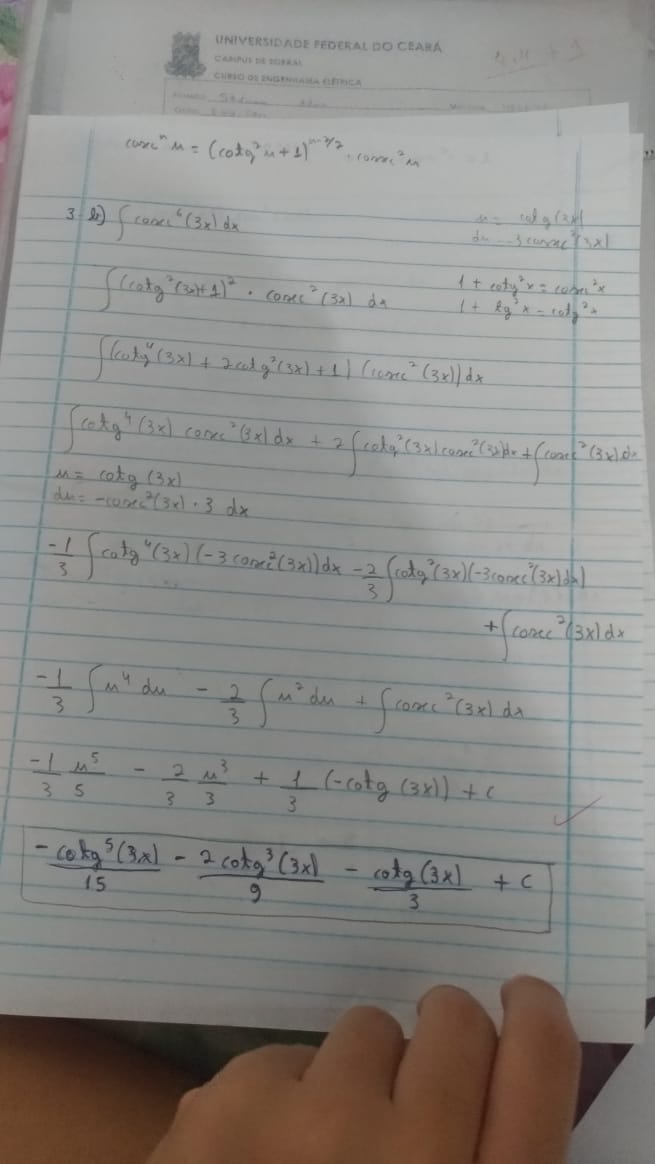 UNIVERSIDADE FEDERAL DO CEARÁ
CAMPUS DE SOBRAL
CURSO DE ENGENHARIA ELÉTRICA
cossecⁿ u = (cotg² u + 1)ⁿ⁻²/² . cossec² u
3. b) ∫ cossec⁶ (3x) dx
u = cotg (3x)
du = -3 cossec² (3x)
∫ (cotg² (3x) + 1)² . cossec² (3x) dx
1 + cotg² x = cossec² x
1 + tg² x = cotg² x
∫ (cotg⁴ (3x) + 2 cotg² (3x) + 1) (cossec² (3x)) dx
∫ cotg⁴ (3x) cossec² (3x) dx + 2 ∫ cotg² (3x) cossec² (3x) dx + ∫ cossec² (3x) dx
u = cotg (3x)
du = -cossec² (3x) . 3 dx
-1/3 ∫ cotg⁴ (3x) (-3 cossec² (3x)) dx - 2/3 ∫ cotg² (3x) (-3 cossec² (3x) dx)
+ ∫ cossec² (3x) dx
-1/3 ∫ u⁴ du - 2/3 ∫ u² du + ∫ cossec² (3x) dx
-1/3 u⁵/5 - 2/3 u³/3 + 1/3 (-cotg (3x)) + c
-cotg⁵ (3x)/15 - 2 cotg³ (3x)/9 - cotg (3x)/3 + c